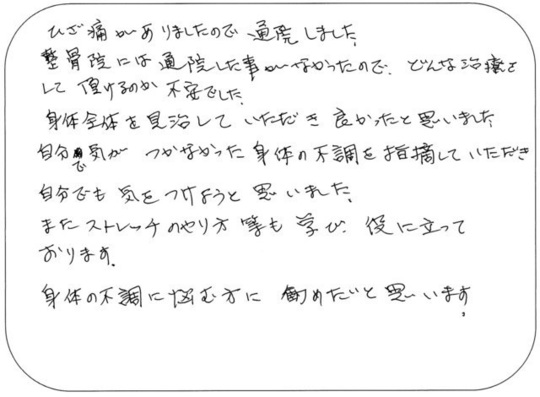 ひざ痛がありましたので通院しました。
整骨院には通院した事がなかったので、どんな治療を
して頂けるのか不安でした。
身体全体を見治していただき良かったと思いました
自分で気がつかなかった身体の不調を指摘していただき
自分でも気をつけようと思いました。
またストレッチのやり方等も学び、役に立って
おります。
身体の不調に悩む方に勧めたいと思います。